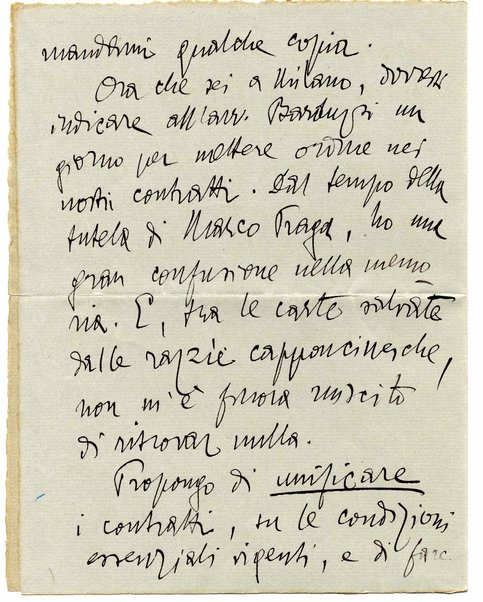 mandarmi qualche copia.
Ora che sei a Milano, dovresti
indicare all'avv. Barduzzi un
giorno per mettere ordine nei
nostri contratti. Dal tempo della
tutela di Marco Praga, ho una
gran confusione nella memo
ria. E, tra le carte salvate
dalle razzìe capponcinesche,
non m'è finora riuscito
di ritrovar nulla.
Propongo di unificare
i contratti, su le condizioni
essenziali vigenti, e di fare